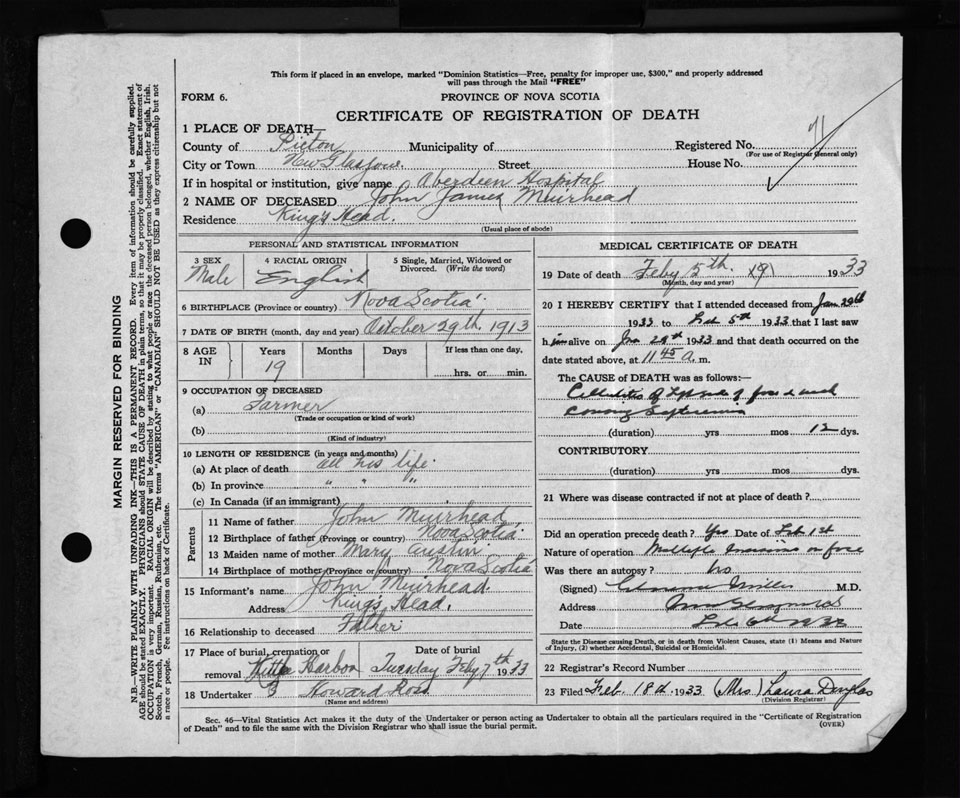 This form if placed in an envelope, marked "Dominion Statistics—Free, penalty for improper use, $300," and properly addressed
will pass through the Mail "FREE"
FORM 6. PROVINCE OF NOVA SCOTIA
CERTIFICATE OF REGISTRATION OF DEATH
71
1 PLACE OF DEATH—
County of Pictou Municipality of Registered No.
(For use of Registrar General only)
City or Town New Glasgow Street House No.
If in hospital or institution, give name Aberdeen Hospital
2 NAME OF DECEASED John James Muirhead
Residence King's Head.
(Usual place of abode)
PERSONAL AND STATISTICAL INFORMATION
3 SEX 4 RACIAL ORIGIN 5 Single, Married, Widowed or
Divorced. (Write the word)
Male English
6 BIRTHPLACE (Province or country) Nova Scotia
7 DATE OF BIRTH (month, day and year) October 29th, 1913
8 AGE IN Years Months Days If less than one day,
19 hrs. or min.
9 OCCUPATION OF DECEASED
(a) Farmer
(Trade or occupation or kind of work)
(b)
(Kind of industry)
10 LENGTH OF RESIDENCE (in years and months)
(a) At place of death all his life
(b) In province " " "
(c) In Canada (if an immigrant)
Parents
11 Name of father John Muirhead
12 Birthplace of father (Province or country) Nova Scotia
13 Maiden name of mother Mary Austin
14 Birthplace of mother (Province or country) Nova Scotia
15 Informant's name John Muirhead
Address King's Head.
16 Relationship to deceased Father
17 Place of burial, cremation or Date of burial
removal Harbor Tuesday Feby 7th 1933
18 Undertaker Howard Ross
(Name and address)
MEDICAL CERTIFICATE OF DEATH
19 Date of death Feby 5th. 1933
(Month, day and year)
20 I HEREBY CERTIFY that I attended deceased from Jan 29th
1933 to Feb 5th 1933 that I last saw
him alive on 1933 and that death occurred on the
date stated above, at 11 45 a. m.
The CAUSE of DEATH was as follows:—
Cellulitis of face & neck
(duration) yrs mos 12 dys.
CONTRIBUTORY
(duration) yrs mos dys.
21 Where was disease contracted if not at place of death?
Did an operation precede death? Yes Date of Feb 1st
Nature of operation Multiple Incisions on face
Was there an autopsy? No
(Signed) M.D.
Address
Date
State the Disease causing Death, or in death from Violent Causes, state (1) Means and Nature
of Injury, (2) whether Accidental, Suicidal or Homicidal.
22 Registrar's Record Number
23 Filed Feb. 18th 1933 (Mrs) Laura Douglas
(Division Registrar)
Sec. 46—Vital Statistics Act makes it the duty of the Undertaker or person acting as Undertaker to obtain all the particulars required in the "Certificate of Registration
of Death" and to file the same with the Division Registrar who shall issue the burial permit. (OVER)
MARGIN RESERVED FOR BINDING
N.B.—WRITE PLAINLY WITH UNFADING INK—THIS IS A PERMANENT RECORD. Every item of information should be carefully supplied.
AGE should be stated EXACTLY. PHYSICIANS should STATE CAUSE OF DEATH in plain terms, so that it may be properly classified. Exact statement of
OCCUPATION is very important. RACIAL ORIGIN will be described by stating to what people or race the deceased person belonged, whether English, Irish,
Scotch, French, German, Russian, Ruthenian, etc. The terms "AMERICAN" or "CANADIAN" SHOULD NOT BE USED as they express citizenship but not
a race or people. See instructions on back of Certificate.